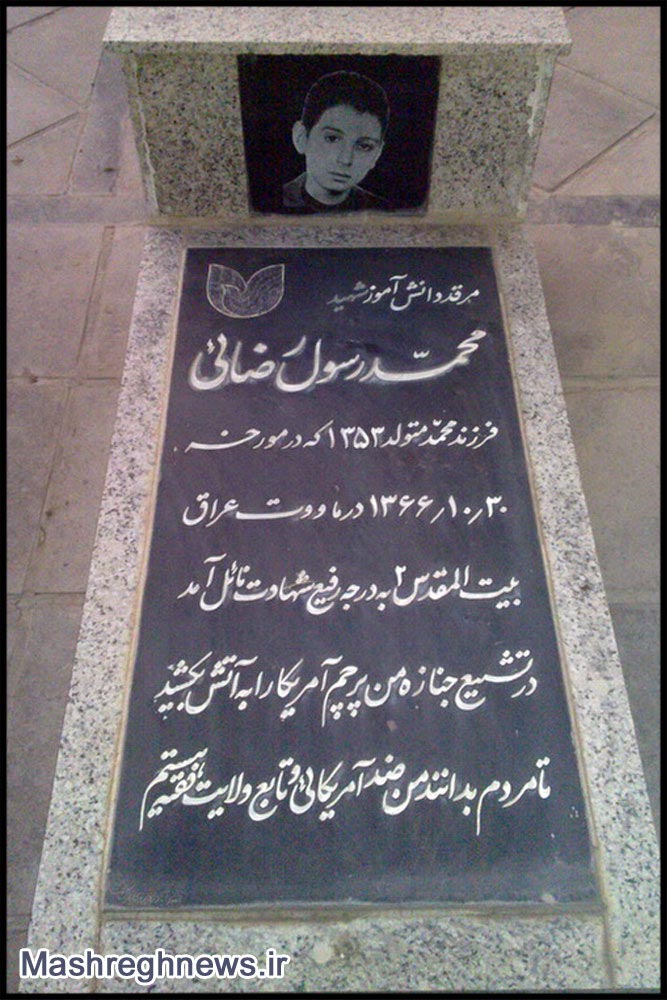 مرقد دانش آموز شهید
محمّد رسول رضائی
فرزند محمّد متولد ۱۳۵۳ که در مورخه
۱۳۶۶٫۱۰٫۳۰ در ماووت عراق
بیت المقدس ۲ به درجه رفیع شهادت نائل آمد
در تشییع جنازه من پرچم آمریکا را به آتش بکشید
تا مردم بدانند من ضد آمریکائی و تابع ولایت فقیه هستم
Mashreghnews.ir